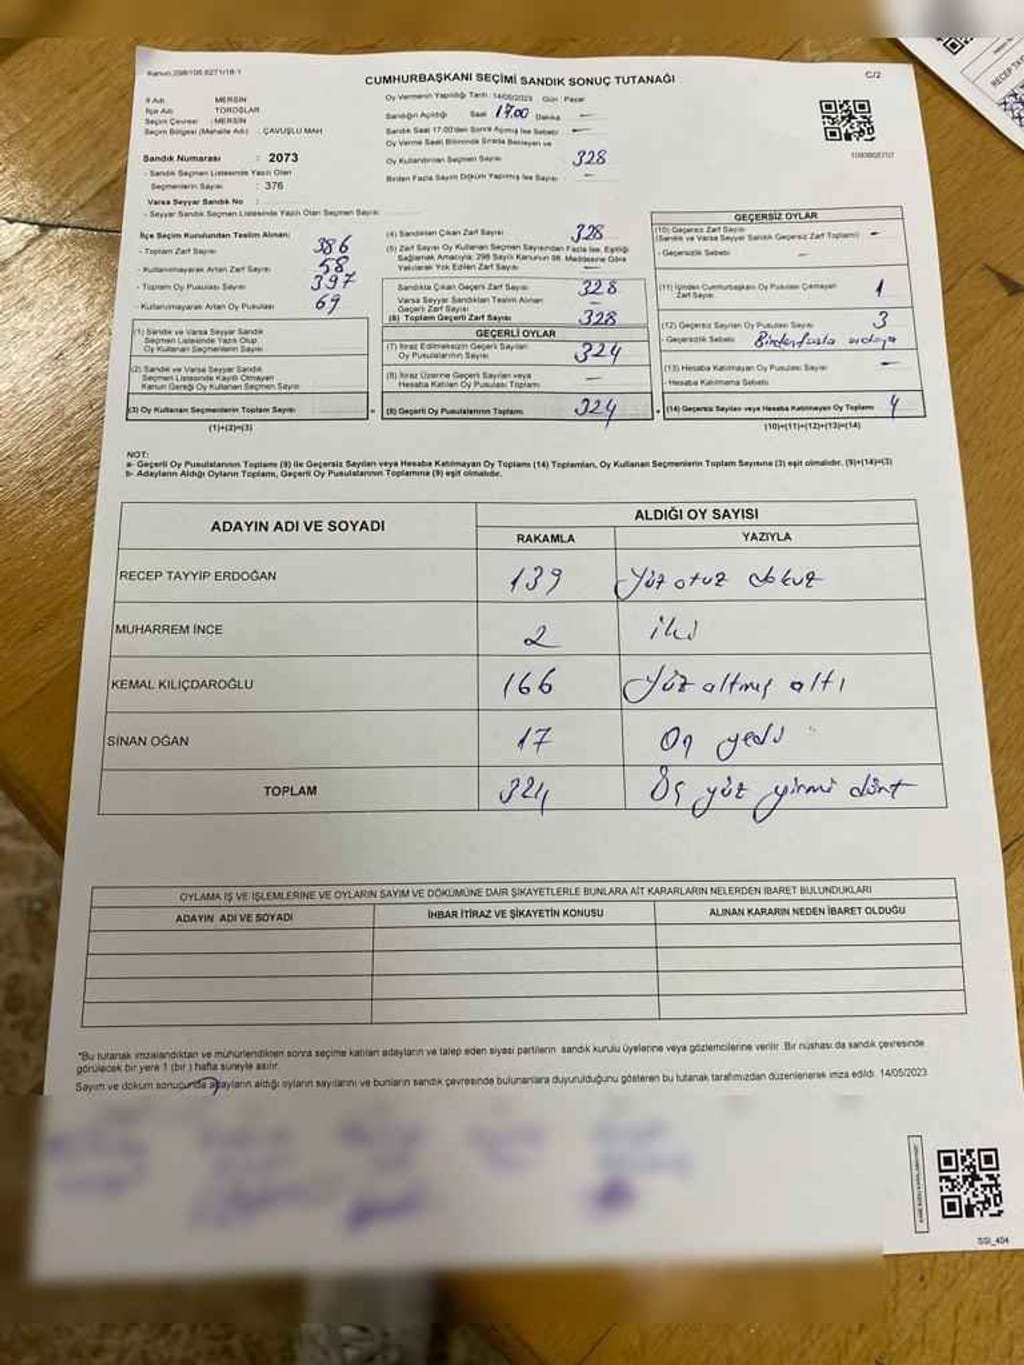 Kanun:298/105.6271/18-1
CUMHURBAŞKANI SEÇİMİ SANDIK SONUÇ TUTANAĞI
C/2
İl Adı : MERSİN
İlçe Adı : TOROSLAR
Seçim Çevresi : MERSİN
Seçim Bölgesi (Mahalle Adı) : ÇAVUŞLU MAH
Sandık Numarası : 2073
- Sandık Seçmen Listesinde Yazılı Olan
Seçmenlerin Sayısı : 376
Varsa Seyyar Sandık No :
- Seyyar Sandık Seçmen Listesinde Yazılı Olan Seçmen Sayısı
Oy Vermenin Yapıldığı Tarih : 14/05/2023 Gün : Pazar
Sandığın Açıldığı Saat 17.00 Dakika —
Sandık Saat 17:00'den Sonra Açılmış İse Sebebi —
Oy Verme Saati Bitiminde Sırada Bekleyen ve
Oy Kullandırılan Seçmen Sayısı 328
Birden Fazla Sayım Döküm Yapılmış İse Sayısı : —
İlçe Seçim Kurulundan Teslim Alınan;
- Toplam Zarf Sayısı 386
- Kullanılmayarak Artan Zarf Sayısı 58
- Toplam Oy Pusulası Sayısı 397
- Kullanılmayarak Artan Oy Pusulası 69
(1) Sandık ve Varsa Seyyar Sandık
Seçmen Listesinde Yazılı Olup
Oy Kullanan Seçmenlerin Sayısı
(2) Sandık ve Varsa Seyyar Sandık
Seçmen Listesinde Kayıtlı Olmayan
Kanun Gereği Oy Kullanan Seçmen Sayısı
(3) Oy Kullanan Seçmenlerin Toplam Sayısı
(1)+(2)=(3)
(4) Sandıktan Çıkan Zarf Sayısı 328
(5) Zarf Sayısı Oy Kullanan Seçmen Sayısından Fazla İse, Eşitliği
Sağlamak Amacıyla; 298 Sayılı Kanunun 98. Maddesine Göre
Yakılarak Yok Edilen Zarf Sayısı —
Sandıkta Çıkan Geçerli Zarf Sayısı 328
Varsa Seyyar Sandıktan Teslim Alınan
Geçerli Zarf Sayısı —
(6) Toplam Geçerli Zarf Sayısı 328
GEÇERLİ OYLAR
(7) İtiraz Edilmeksizin Geçerli Sayılan
Oy Pusulalarının Sayısı 324
(8) İtiraz Üzerine Geçerli Sayılan veya
Hesaba Katılan Oy Pusulası Toplamı —
(9) Geçerli Oy Pusulalarının Toplamı 324
GEÇERSİZ OYLAR
(10) Geçersiz Zarf Sayısı
(Sandık ve Varsa Seyyar Sandık Geçersiz Zarf Toplamı) —
- Geçersizlik Sebebi —
(11) İçinden Cumhurbaşkanı Oy Pusulası Çıkmayan
Zarf Sayısı 1
(12) Geçersiz Sayılan Oy Pusulası Sayısı 3
- Geçersizlik Sebebi Birden fazla
(13) Hesaba Katılmayan Oy Pusulası Sayısı —
- Hesaba Katılmama Sebebi
(14) Geçersiz Sayılan veya Hesaba Katılmayan Oy Toplamı 4
(10)+(11)+(12)+(13)=(14)
NOT:
a- Geçerli Oy Pusulalarının Toplamı (9) ile Geçersiz Sayılan veya Hesaba Katılmayan Oy Toplamı (14) Toplamları, Oy Kullanan Seçmenlerin Toplam Sayısına (3) eşit olmalıdır. (9)+(14)=(3)
b- Adayların Aldığı Oyların Toplamı, Geçerli Oy Pusulalarının Toplamına (9) eşit olmalıdır.
ADAYIN ADI VE SOYADI ALDIĞI OY SAYISI
RAKAMLA YAZIYLA
RECEP TAYYİP ERDOĞAN 139 Yüz otuz dokuz
MUHARREM İNCE 2 iki
KEMAL KILIÇDAROĞLU 166 Yüz altmış altı
SİNAN OĞAN 17 On yedi
TOPLAM 324 Üç yüz yirmi dört
OYLAMA İŞ VE İŞLEMLERİNE VE OYLARIN SAYIM VE DÖKÜMÜNE DAİR ŞİKAYETLERLE BUNLARA AİT KARARLARIN NELERDEN İBARET BULUNDUKLARI
ADAYIN ADI VE SOYADI İHBAR İTİRAZ VE ŞİKAYETİN KONUSU ALINAN KARARIN NEDEN İBARET OLDUĞU
*Bu tutanak imzalandıktan ve mühürlendikten sonra seçime katılan adayların ve talep eden siyasi partilerin sandık kurulu üyelerine veya gözlemcilerine verilir. Bir nüshası da sandık çevresinde
görülecek bir yere 1 (bir) hafta süreyle asılır.
Sayım ve döküm sonucunda adayların aldığı oyların sayılarını ve bunların sandık çevresinde bulunanlara duyurulduğunu gösteren bu tutanak tarafımızdan düzenlenerek imza edildi. 14/05/2023
SSI_404
RECEP TAY